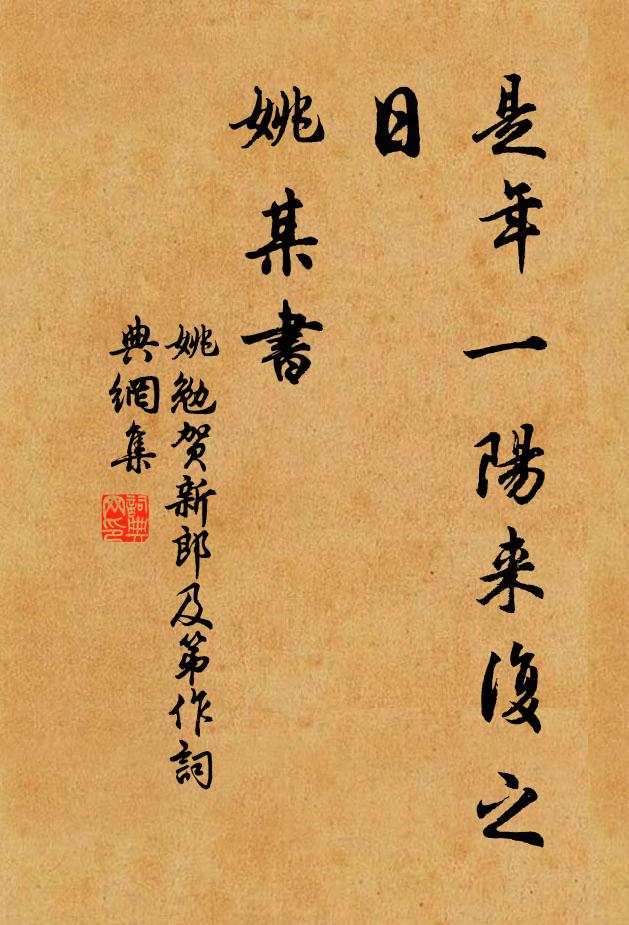 是年一陽来復之
日
姚某書
姚勉賀新郎及第作詞
典網集
詞典
网印